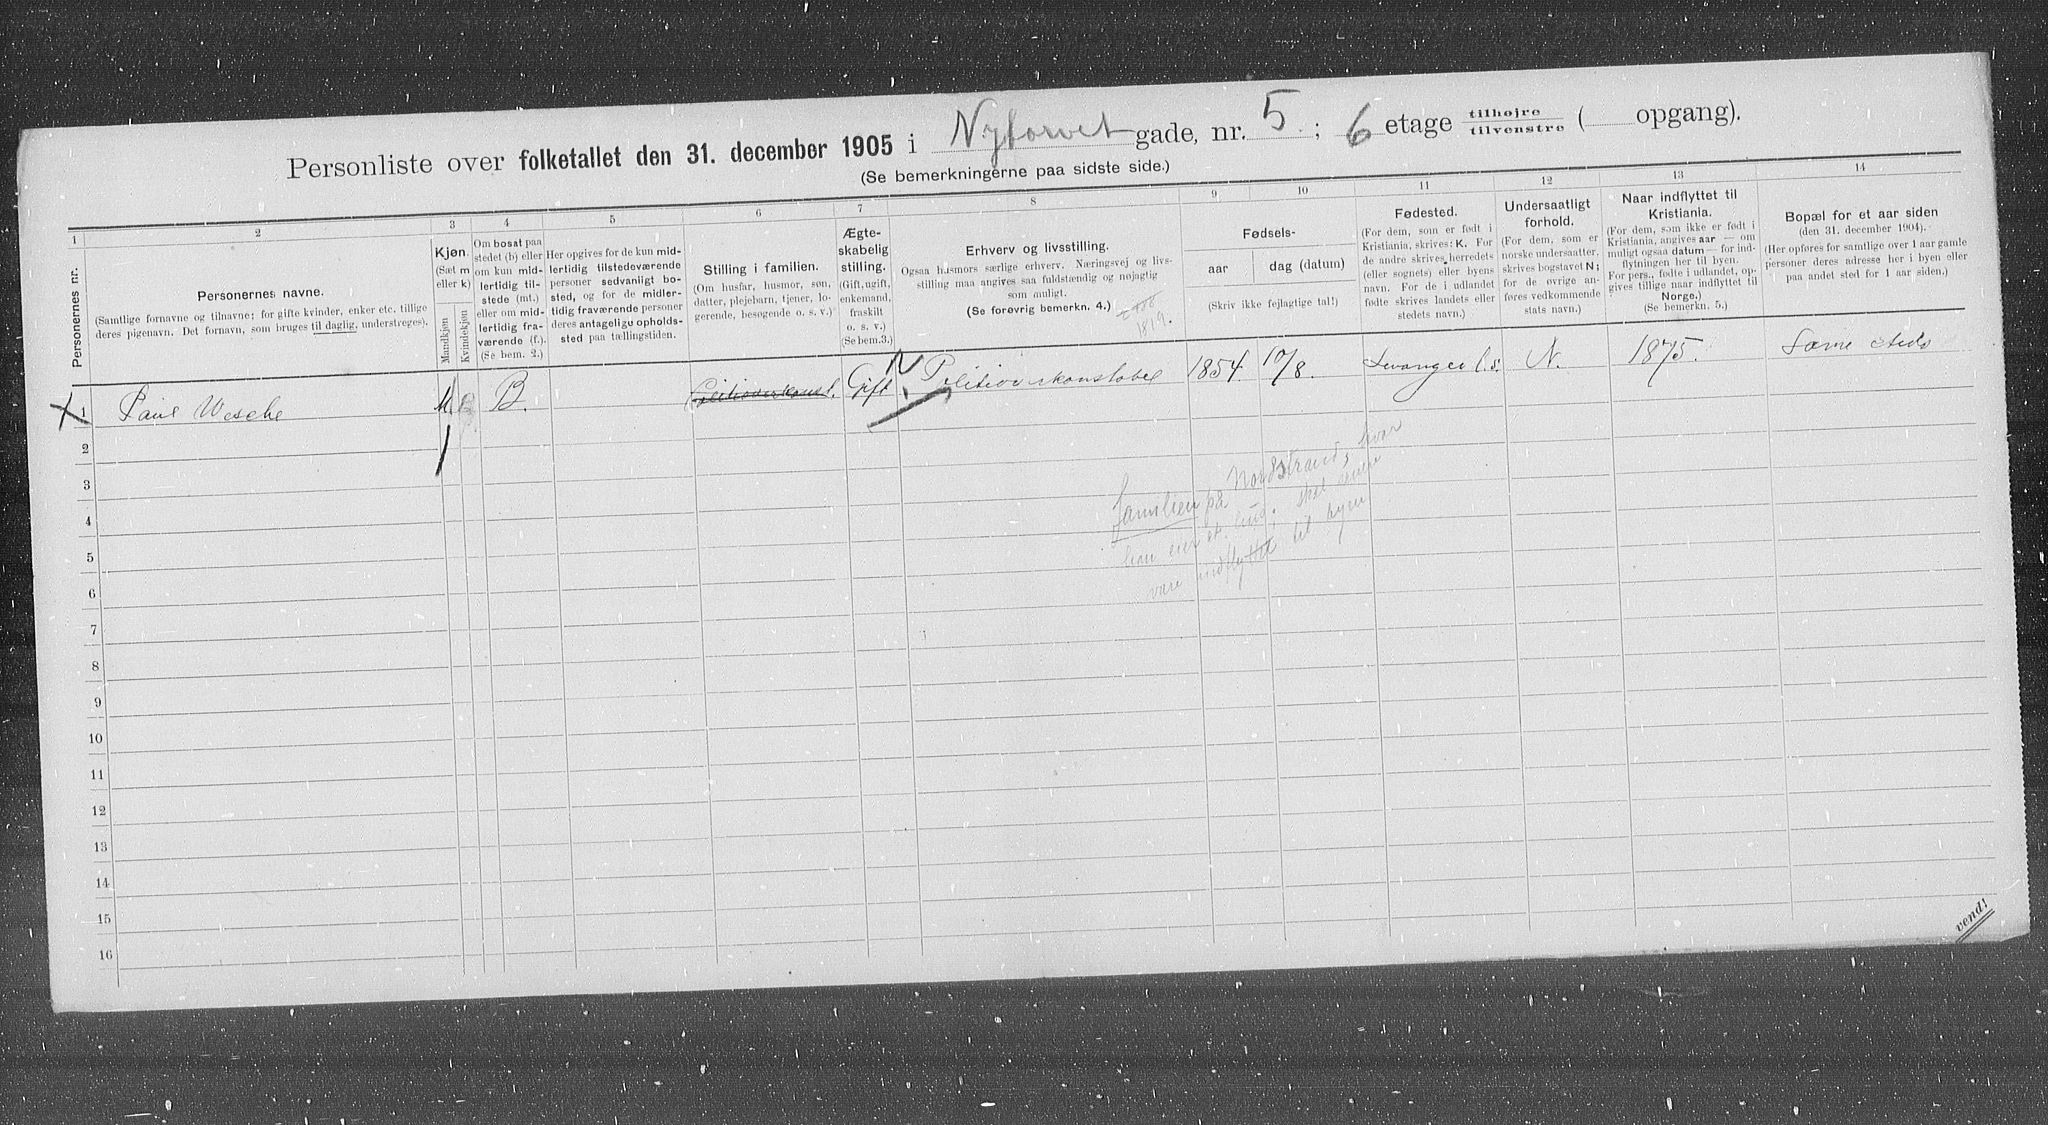 Personliste over folketallet den 31. december 1905 i Nytorvet gade, nr. 5. ; 6 etage tilhøjre tilvenstre ( opgang).
(Se bemerkningerne paa sidste side.)
1 2 3 4 5 6 7 8 9 10 11 12 13 14
Personernes nr.
Personernes navne.
(Samtlige fornavne og tilnavne; for gifte kvinder, enker etc. tillige
deres pigenavn. Det fornavn, som bruges til daglig, understreges).
Kjøn.
(Sæt m
eller k)
Mandkjøn
Kvindekjøn
Om bosat paa
stedet (b) eller
om kun mid-
lertidig til-
stede (mt.)
eller om mid-
lertidig fra-
værende (f.).
(Se bem. 2.)
Her opgives for de kun mid-
lertidig tilstedeværende
personer sedvanligt bo-
sted, og for de midler-
tidig fraværende personer
deres antagelige opholds-
sted paa tællingstiden.
Stilling i familien.
(Om husfar, husmor, søn,
datter, plejebarn, tjener, lo-
gerende, besøgende o. s. v.)
Ægte-
skabelig
stilling.
(Gift, ugift,
enkemand,
fraskilt
o. s. v.)
(Se bem. 3.)
Erhverv og livsstilling.
Ogsaa husmors særlige erhverv. Næringsvej og livs-
stilling maa angives saa fuldstændig og nøjagtig
som muligt.
(Se forøvrig bemerkn. 4.)
1819.
Fødsels-
aar
dag (datum)
(Skriv ikke fejlagtige tal!)
Fødested.
(For dem, som er født i
Kristiania, skrives: K. For
de andre skrives herredets
(eller sognets) eller byens
navn. For de i udlandet
fødte skrives landets eller
stedets navn.)
Undersaatligt
forhold.
(For dem, som er
norske undersaatter,
skrives bogstavet N;
for de øvrige an-
føres vedkommende
stats navn.)
Naar indflyttet til
Kristiania.
(For dem, som ikke er født i
Kristiania, angives aar — om
muligt ogsaa datum — for ind-
flytningen her til byen.
For pers., fødte i udlandet, op-
gives tillige naar indflyttet til
Norge.)
(Se bemerkn. 5.)
Bopæl for et aar siden
(den 31. december 1904).
(Her opføres for samtlige over 1 aar gamle
personer deres adresse her i byen eller
paa andet sted for 1 aar siden.)
X 1 Paul Wesche M. B. Politioverkonst. Gift N Politioverkonstabel 1854. 10/8. Levanger l.s. N. 1875. Samme steds
2
3
4
5
6
7
8
9
10
11
12
13
14
15
16
familien på Nordstrand, hvor
han eier et hus; skal senere
være indflyttet til byen
vend!